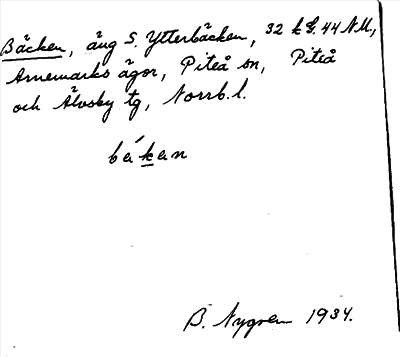 Bäcken, äng S. Ytterbäcken, 32 k S. 44 NM,
Arnemarks ägor, Piteå sn, Piteå
och Älvsby tg, Norrb. l.
bäkan
B. Nygren 1934.